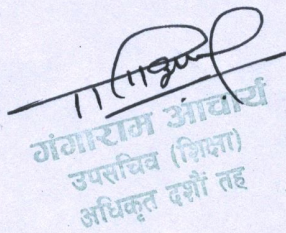 गंगाराम आचार्य
उपसचिव (शिक्षा)
अधिकृत दशौं तह